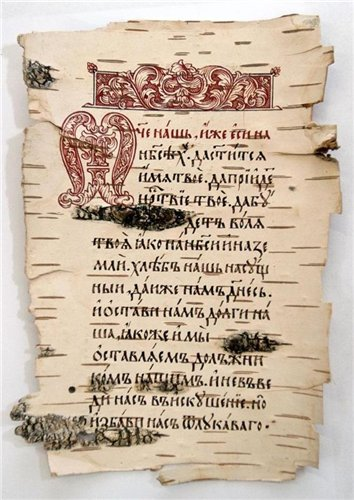 Ѿче нашъ, иже еси на
нб҃сѣхъ. да ст҃итсѧ
имѧ твое. да прїиде
црⷭ҇твїе твое. да бу
детъ волѧ
твоѧ ꙗко на нб҃си и на зе
мли. хлѣбъ нашъ насущ
ныи, даиже намъ дн҃есь.
и остави намъ долги на
ша, ꙗкоже и мы
оставлѧемъ должни
комъ нашимъ. и не въве
ди насъ въ искушенїе. но
избави насъ ѿ лукаваго.